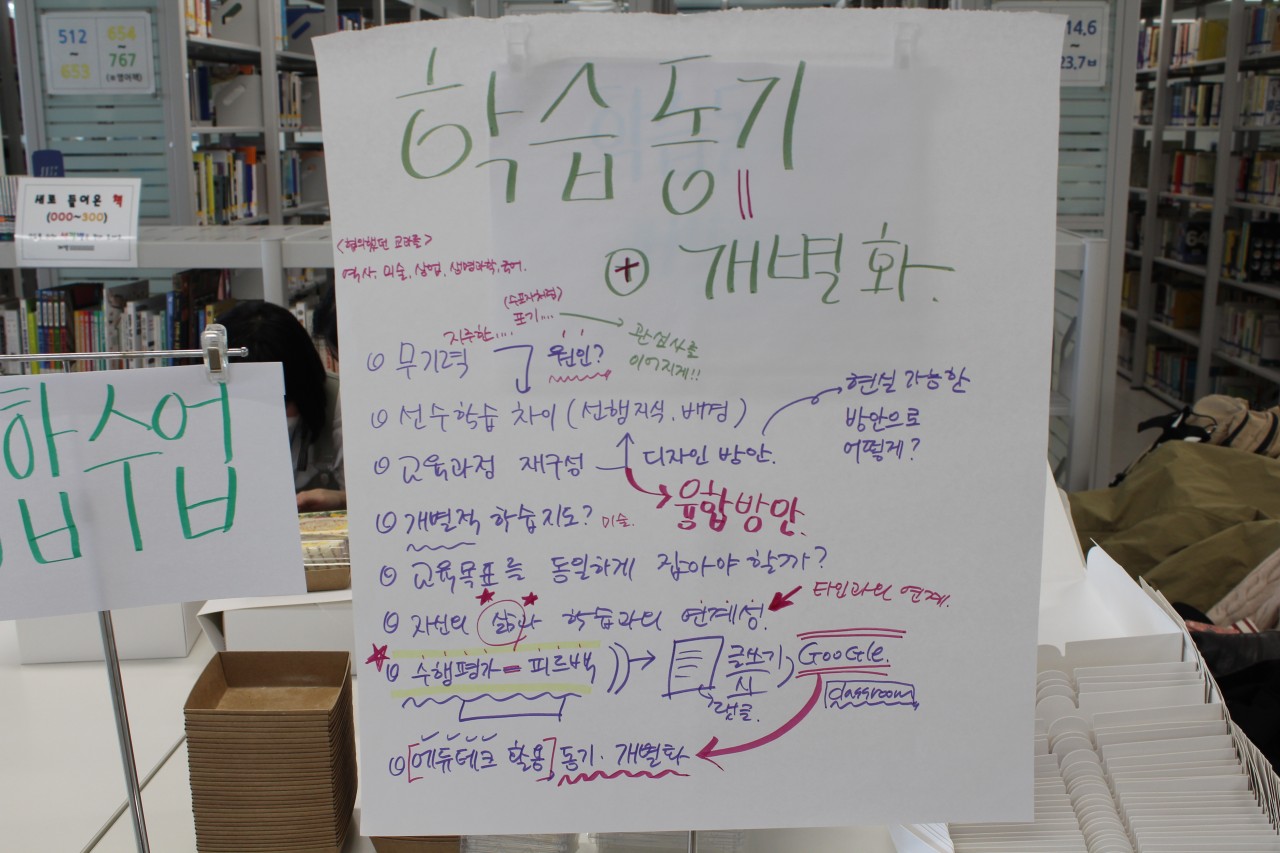 512
~
653
654
~
767
(※영어책)
14.6
~
23.7ㅂ
새로 들어온 책
(000~300)
합수업
학습동기
+ 개별화.
<협의했던 교과들>
역사. 미술. 상업. 생명과학, 국어.
(수포자처럼)
포기....
지루한....
관심사를
이어지게!!
무기력
원인?
선수학습 차이 (선행지식, 배경)
현실 가능한
방안으로
어떻게?
교육과정 재구성
디자인 방안.
융합방안.
개별적 학습지도? 미술.
교육목표를 동일하게 잡아야 할까?
자신의 삶과 학습과의 연계성.
타인과의 연계.
수행평가 = 피드백
글쓰기
시
Google.
classroom
댓글.
[에듀테크 활용] 동기. 개별화